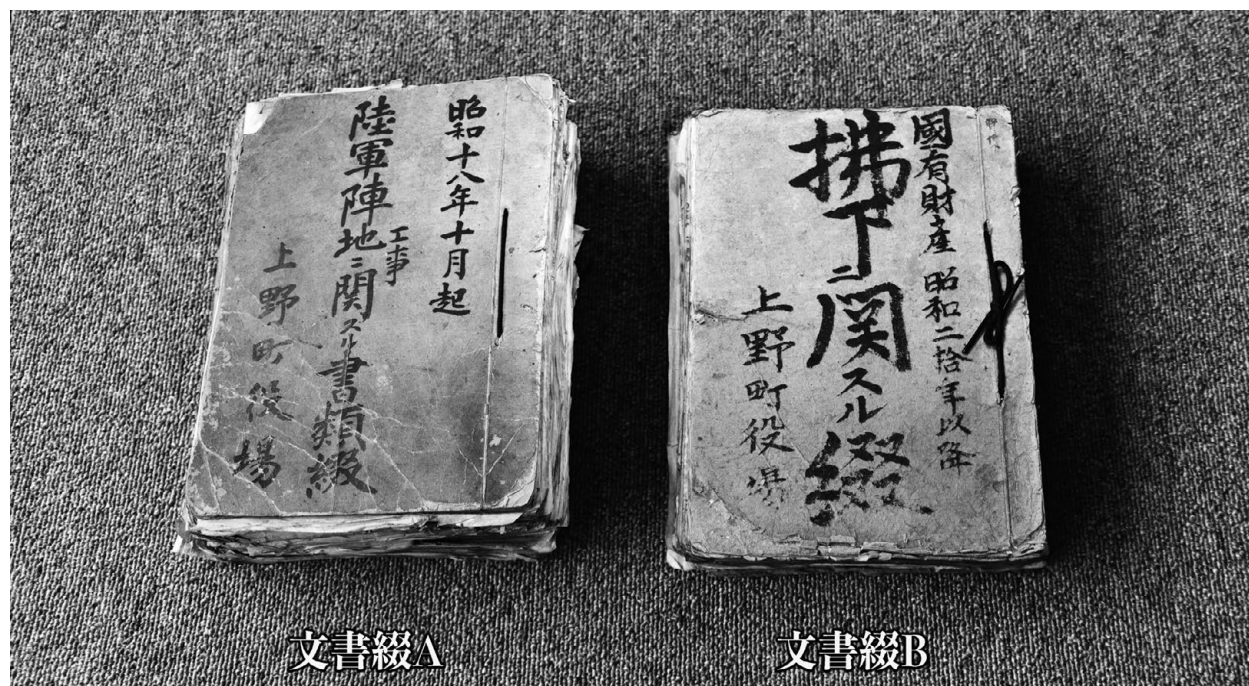 昭和十八年十月起
陸軍陣地工事ニ関スル書類綴
上野町役場
國有財産 昭和二拾年以降
拂下ニ関スル綴
上野町役場
文書綴A
文書綴B